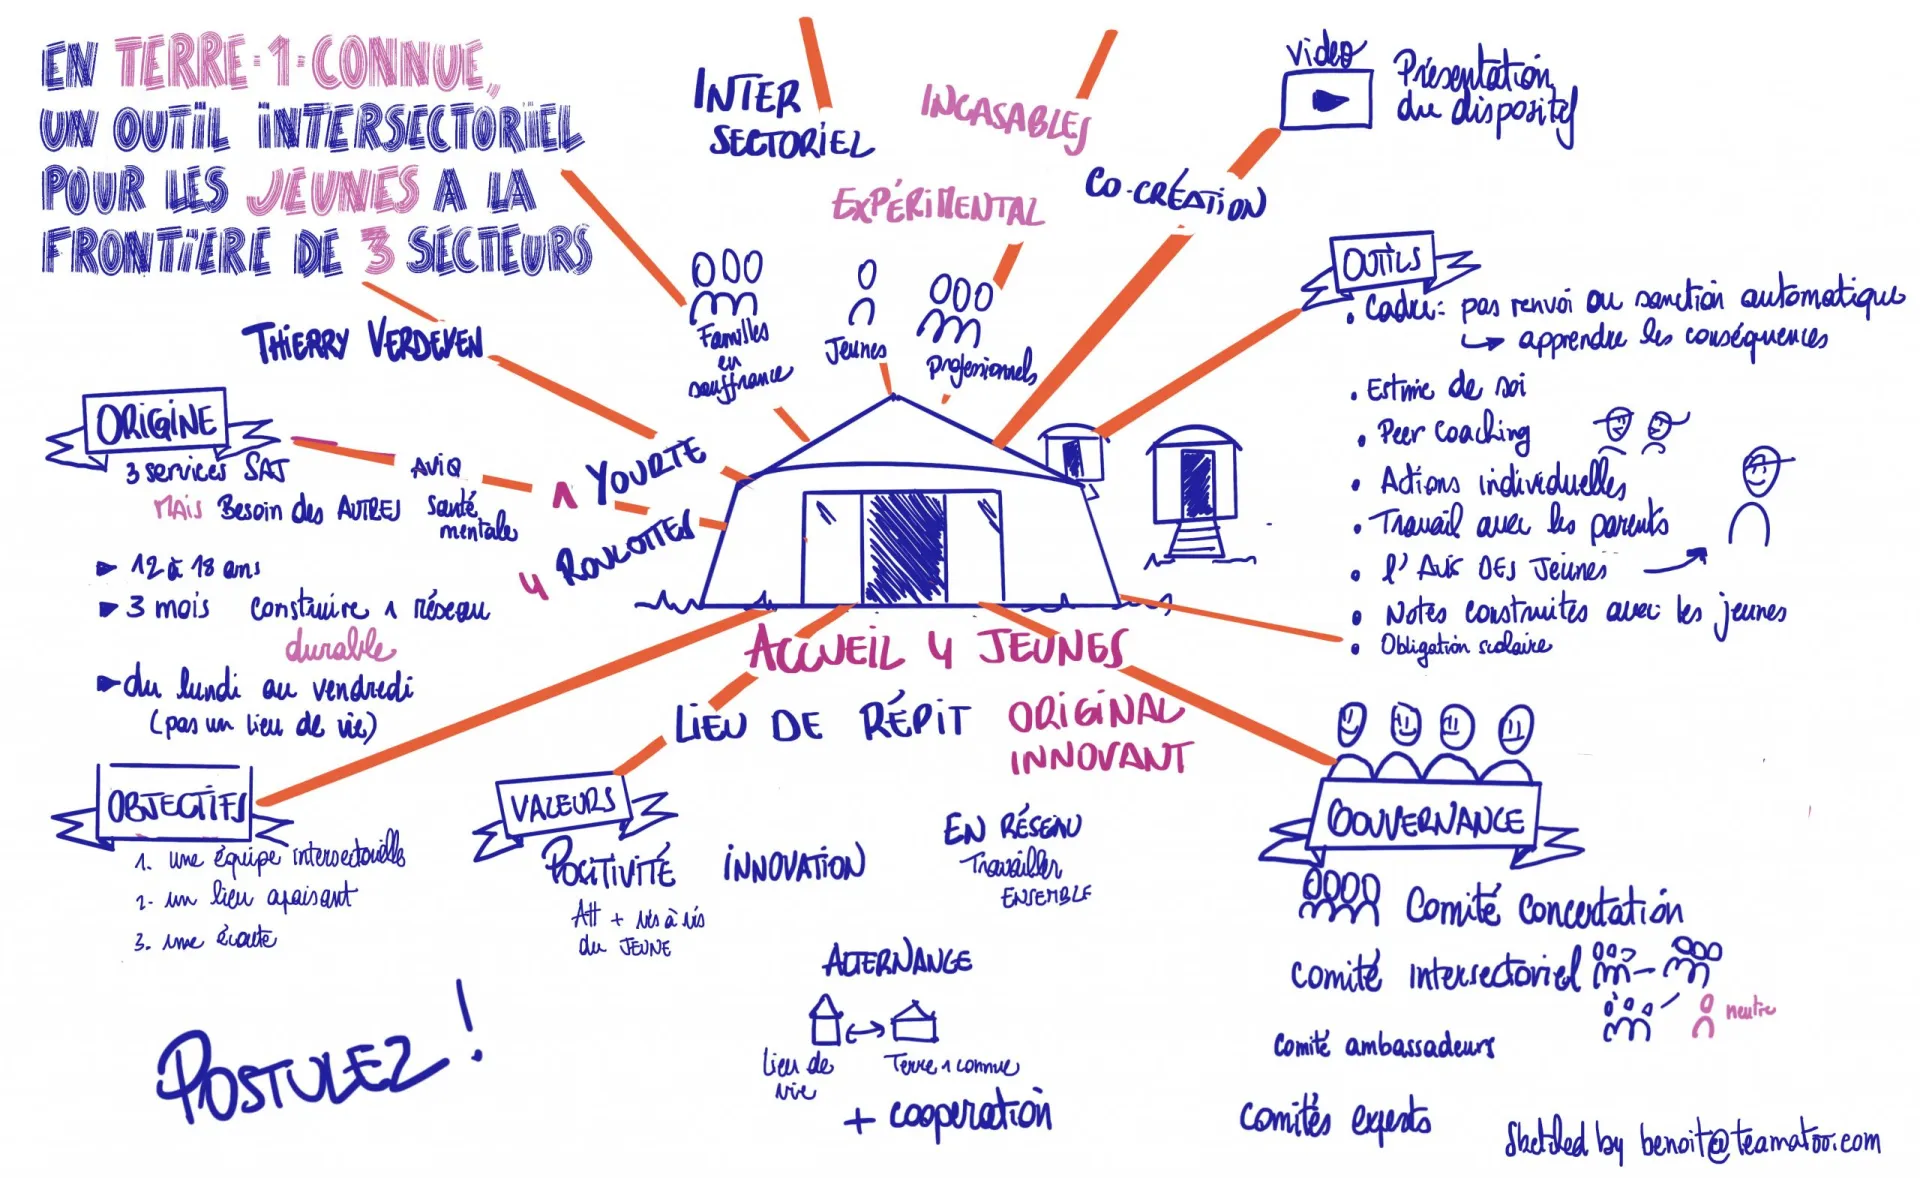 EN TERRE-1-CONNUE,
UN OUTIL INTERSECTORIEL
POUR LES JEUNES A LA
FRONTIERE DE 3 SECTEURS
THIERRY VERDEYEN
INTER
SECTORIEL
INCASABLES
EXPÉRIMENTAL
CO-CRÉATION
Video
Présentation
du dispositif
Familles
en
souffrance
Jeunes
professionnels
1 YOURTE
4 ROULOTTES
ORIGINE
3 services SAJ
AVIQ
MAIS Besoin des AUTRES
Santé
mentale
12 à 18 ans
3 mois construire 1 réseau
durable
du lundi au vendredi
(pas un lieu de vie)
OUTILS
• Cadre: pas renvoi ou sanction automatique
apprendre les conséquences
• Estime de soi
• Peer Coaching
• Actions individuelles
• Travail avec les parents
• l'AVIS DES Jeunes
• Notes construites avec les jeunes
• Obligation scolaire
ACCUEIL 4 JEUNES
LIEU DE RÉPIT
ORIGINAL
INNOVANT
OBJECTIFS
1. une équipe intersectorielle
2. un lieu apaisant
3. une écoute
VALEURS
POSITIVITÉ
Att + vis à vis
du JEUNE
INNOVATION
EN RÉSEAU
Travailler
ENSEMBLE
ALTERNANCE
Lieu de
vie
Terre 1 connue
+ coopération
GOUVERNANCE
Comité Concertation
Comité Intersectoriel
neutre
Comité ambassadeurs
Comités experts
POSTULEZ!
Sketched by benoit@teamatoo.com